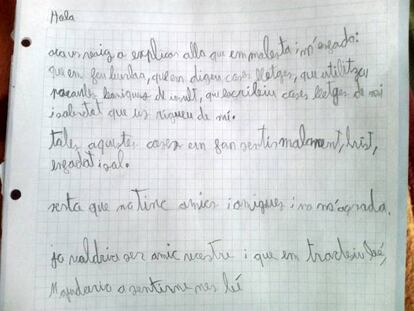 Hola
ara us vaig a explicar allo que em molesta i m'enfada:
que em feu burles, que em digeu coses lletges, que utilitzeu
paraules boniques de insult, que escribieu coses lletges de mi
i sobretot que us rigueu de mi.
totes aquestes coses em fan sentir malament, trist,
enfadat i sol.
sento que no tinc amics i amigues i no m'agrada.
jo voldria ser amic vostre i que em tracteu bé,
M'ajudaria a sentirme mes bé